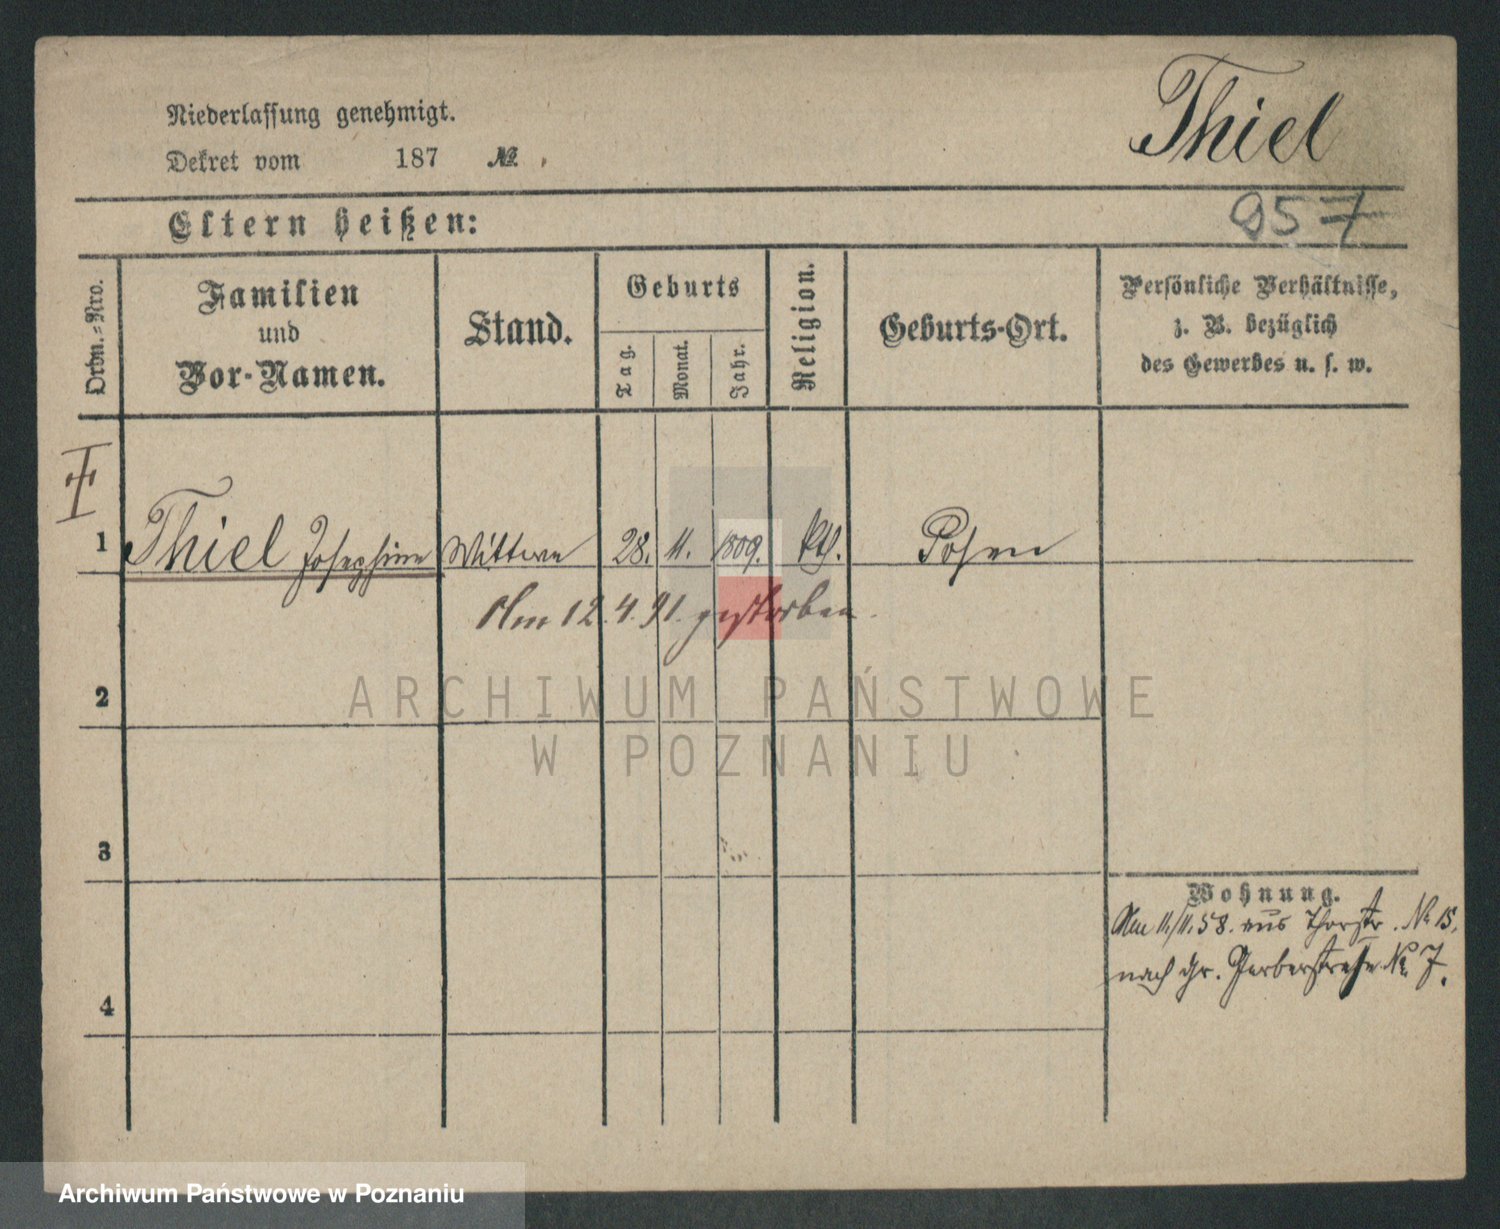 Niederlassung genehmigt.
Dekret vom 187 №
Thiel
957
Eltern heißen:
Ordn.-Nro.
Familien
und
Vor-Namen.
Stand.
Geburts
Tag.
Monat.
Jahr.
Religion.
Geburts-Ort.
Persönliche Verhältnisse,
z. B. bezüglich
des Gewerbes u. s. w.
1 Thiel Josephine Wittwe 28. 11. 1809. kth. Posen
Am 12.4.91. gestorben.
2
ARCHIWUM PAŃSTWOWE
W POZNANIU
3
Wohnung.
Am 11./11.58. aus Thorstr. No 15.
nach Gr. Gerberstraße No 7.
4
Archiwum Państwowe w Poznaniu